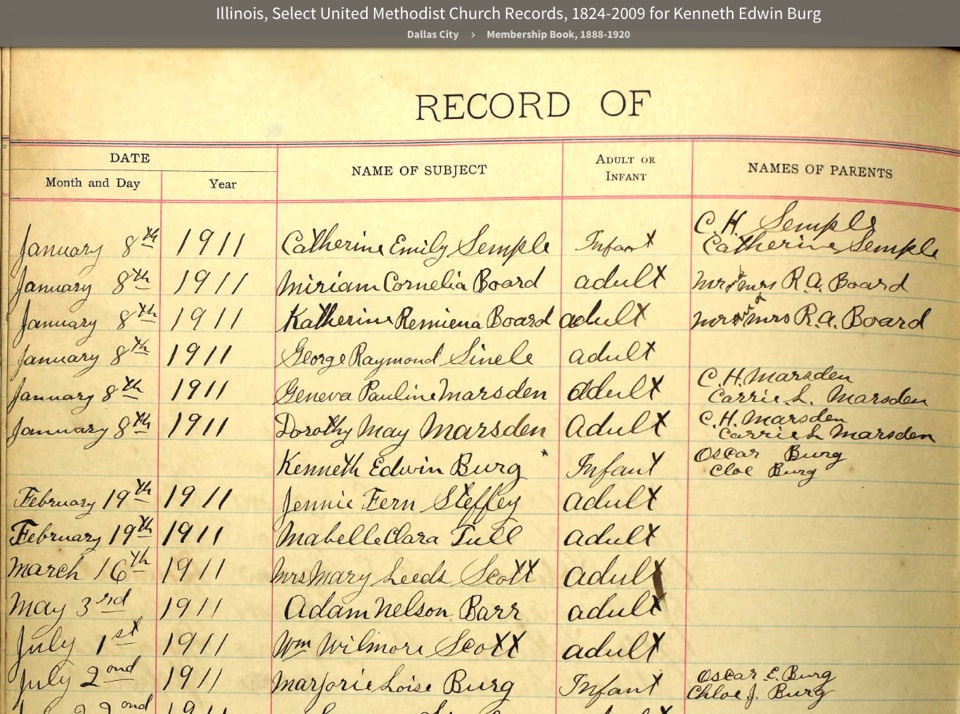 Illinois, Select United Methodist Church Records, 1824-2009 for Kenneth Edwin Burg
Dallas City › Membership Book, 1888-1920
RECORD OF
DATE
Month and Day Year NAME OF SUBJECT ADULT OR INFANT NAMES OF PARENTS
January 8th 1911 Catherine Emily Semple Infant C.H. Semple
Catherine Semple
January 8th 1911 Miriam Cornelia Board adult Mr & Mrs R.A. Board
January 8th 1911 Katherine Remiena Board adult Mr & Mrs R.A. Board
January 8th 1911 George Raymond adult
January 8th 1911 Geneva Pauline Marsden adult C.H. Marsden
Carrie L. Marsden
January 8th 1911 Dorothy May Marsden adult C.H. Marsden
Carrie L Marsden
Kenneth Edwin Burg Infant Oscar Burg
Cloe Burg
February 19th 1911 Jennie Fern Steffey adult
February 19th 1911 Mabelle Clara Tull adult
March 16th 1911 Mrs Mary Leeds Scott adult
May 3rd 1911 Adam Nelson Barr adult
July 1st 1911 Wm Wilmore Scott adult
July 2ond 1911 Marjorie Loise Burg Infant Oscar E. Burg
Chloe J. Burg